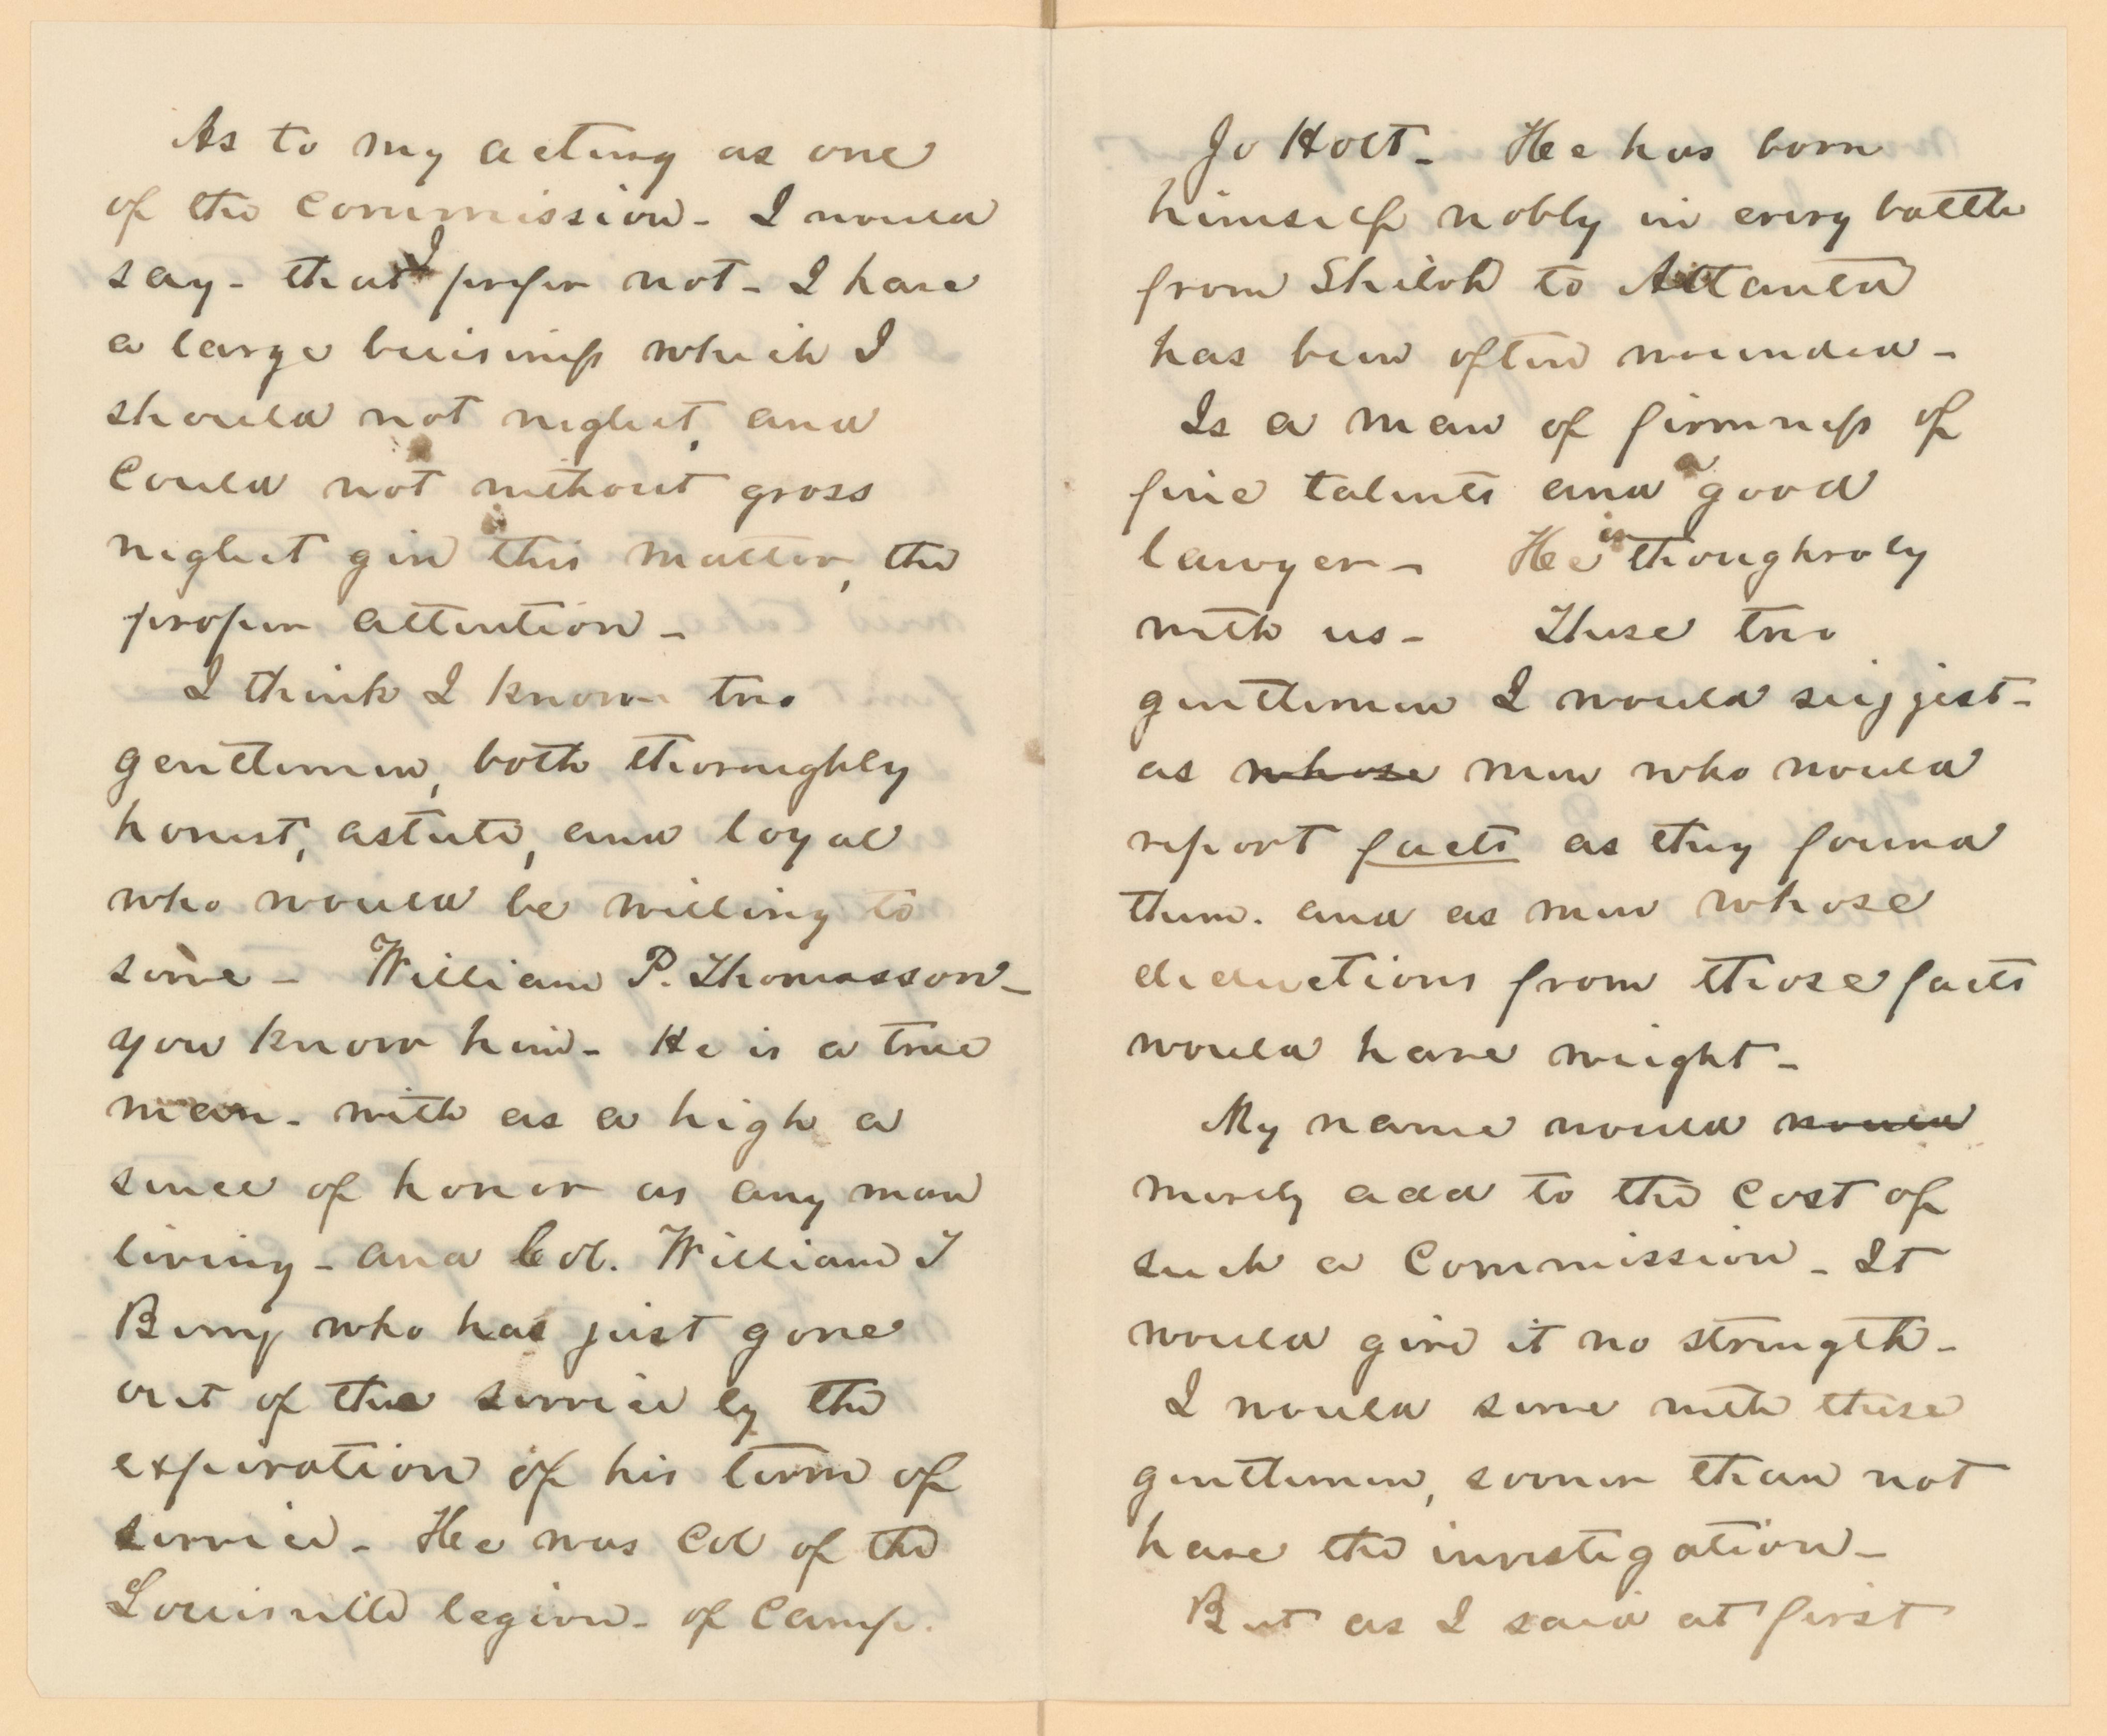 As to my acting as one
of the Commission - I would
say - that I prefer not - I have
a large buisiness which I
should not neglect, and
Could not without gross
neglect give this matter, the
proper attention -
I think I know two
gentlemen, both thoroughly
honest, astute, and loyal
who would be willing to
serve - William P. Thomasson -
you know him - He is a true
man - with as a high a
sence of honor as any man
living - and Col. William J
Berry who has just gone
out of the service by the
expiration of his term of
service - He was Col of the
Louisville legion - of Camp.
Jo Holt - He has born
himself nobly in every battle
from Shiloh to Atlanta
has been often wounded -
Is a man of firmness of
fine talents and a good
lawyer - He is thoughroly
with us - These two
gentlemen I would suggest -
as whose men who would
report facts as they found
them. and as men whose
deductions from those facts
would have weight -
My name would would
merely add to the Cost of
such a Commission - It
would give it no strength -
I would serve with these
gentlemen, sooner than not
have the investigation -
But as I said at first